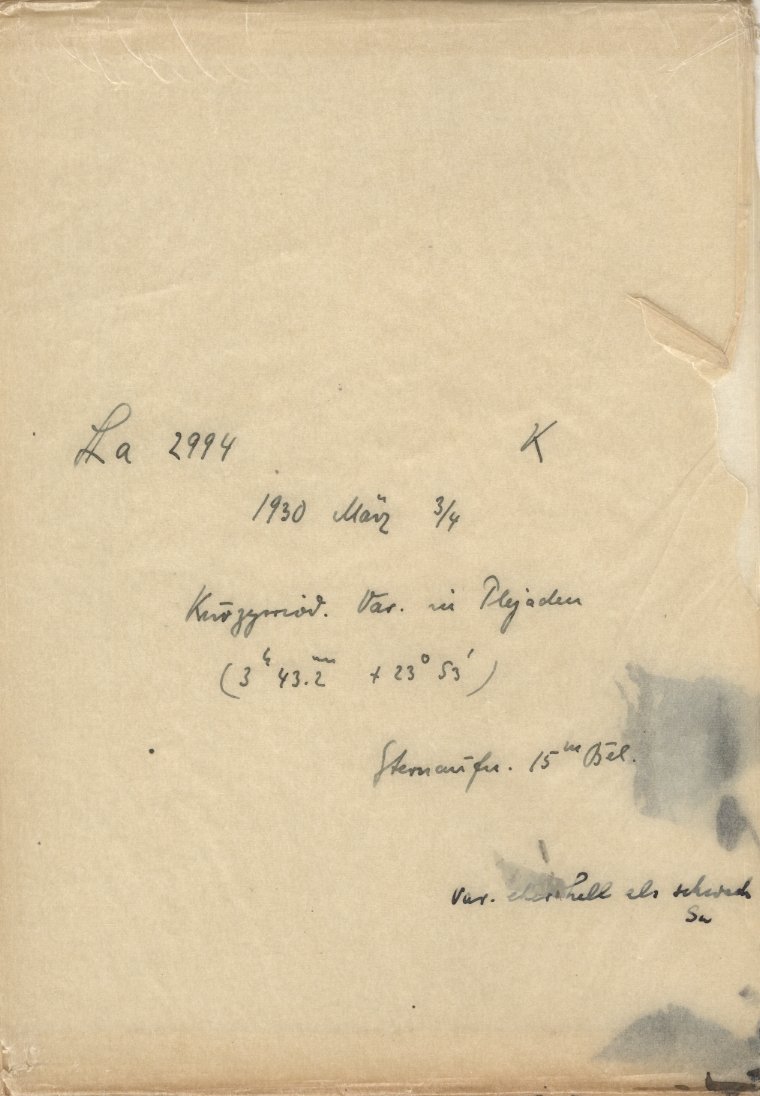 La 2994 K
1930 März 3/4
Kurzperiod. Var. in Plejaden
(3ʰ 43.2ᵐ + 23° 53')
Sternaufn. 15ᵐ Bel.
Var. eher hell als schwach
Sa